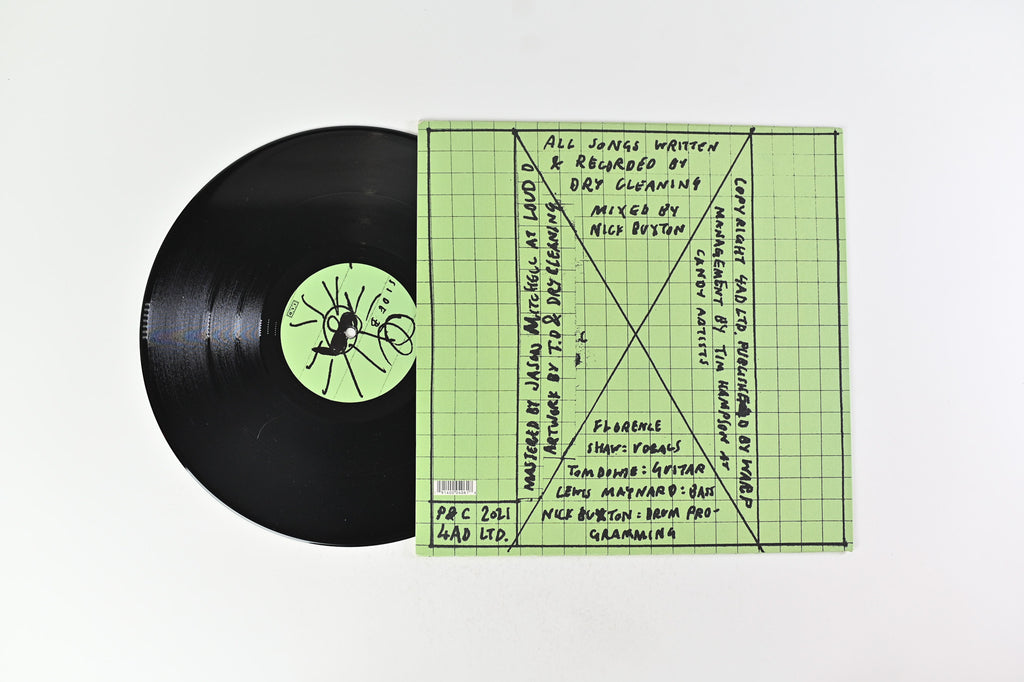 ALL SONGS WRITTEN
& RECORDED BY
DRY CLEANING
MIXED BY
NICK BUXTON
MASTERED BY JASON MITCHELL AT LOUD D
ARTWORK BY T.D & DRY CLEANING.
COPYRIGHT 4AD LTD. PUBLISHED BY WARP
MANAGEMENT BY TIM HAMPSON AT
CANDY ARTISTS
FLORENCE
SHAW: VOCALS
TOM DOWSE: GUITAR
LEWIS MAYNARD: BASS
NICK BUXTON: DRUM PRO-
GRAMMING
P&C 2021
4AD LTD.